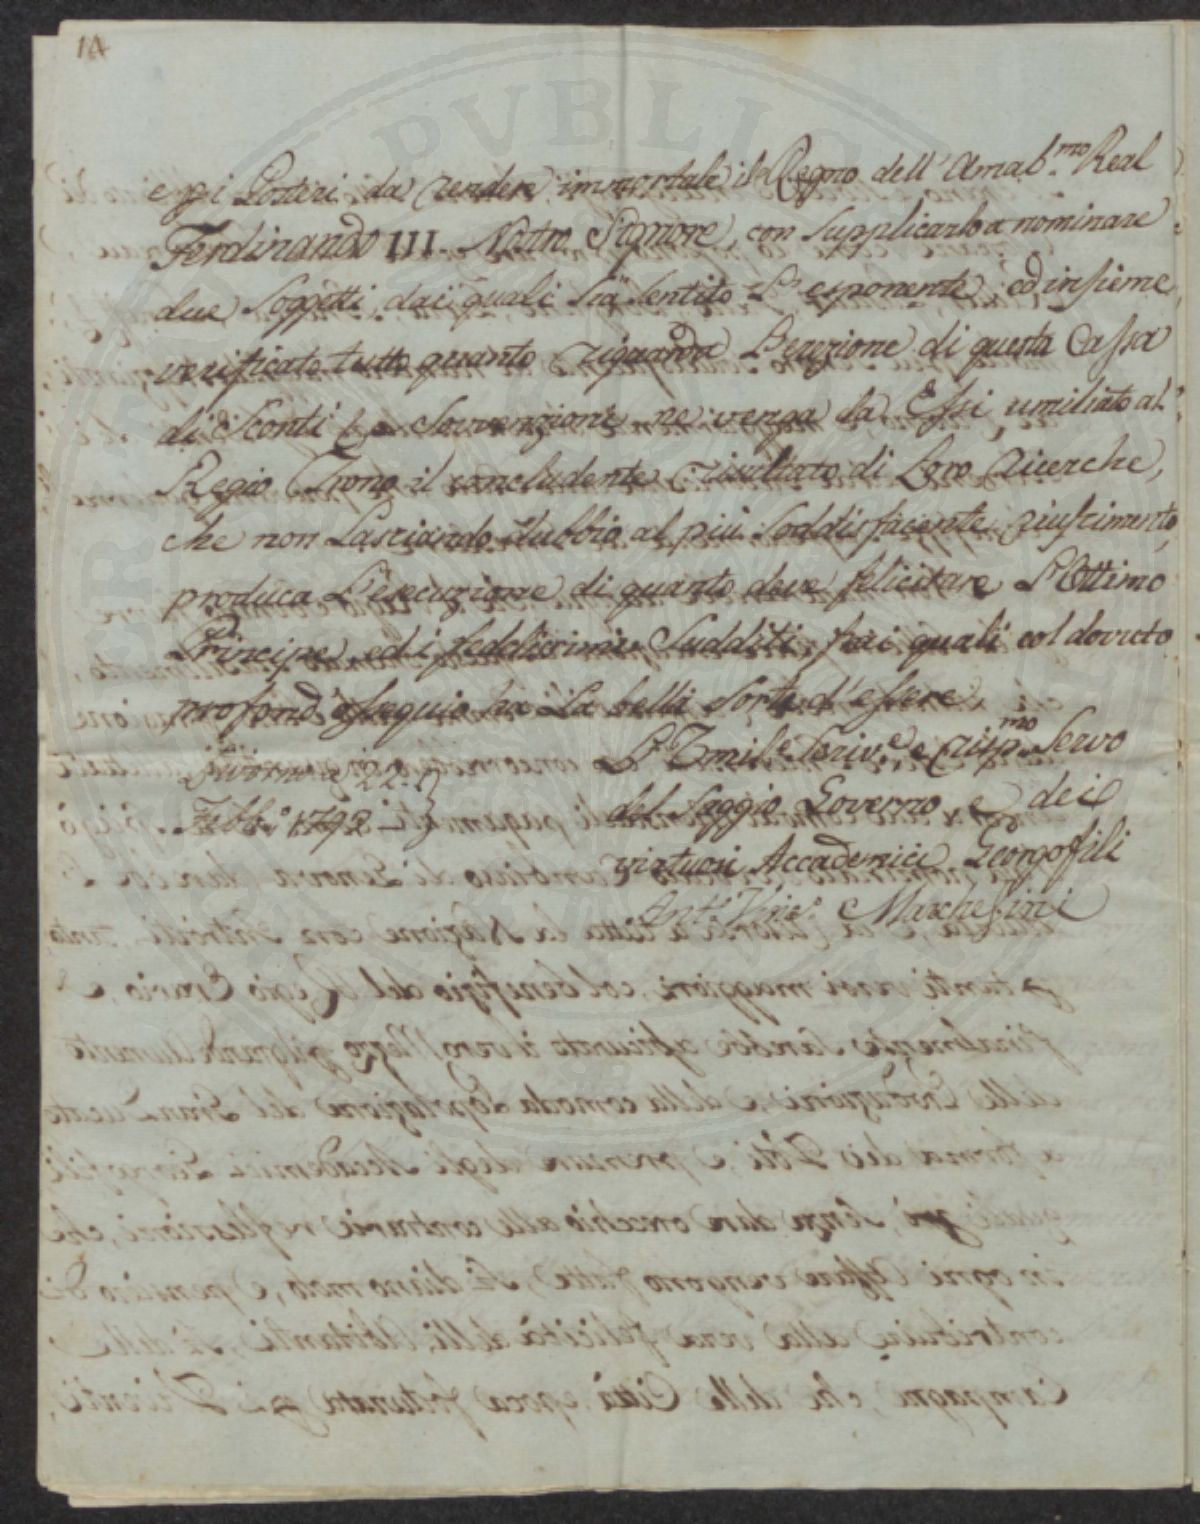 14
e pei Posteri da rendere immortale il Regno dell' Amab.mo Real
Ferdinando III. Nostro Signore, con supplicarlo a nominare
due Soggetti dai quali sia sentito L' esponente ed insieme
verificato tutto quanto riguarda L'erezione di questa Cassa
di Sconti e Sovvenzioni ne venga da Essi umiliato al
Regio Trono il concludente risultato di Loro Ricerche,
che non Lasciando dubbio al più soddisfacente riuscimento,
produca L'esecuzione di quanto deve felicitare L'Ottimo
Principe ed i fedelissimi Sudditi, fra i quali col dovuto
profond' ossequio ha La bella Sorte d'essere
Livorno 22.
Febb.o 1792
L' Umil.e Seriv.e e risp.mo Servo
del Saggio Governo, e dei
virtuosi Accademici Georgofili
Ant.o Marchesini